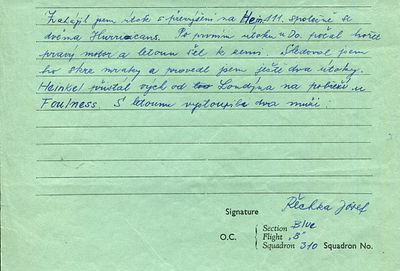 Zahájil jsem útok s převýšení na Hein 111. společně se
dvěma Hurricans. Po prvním útoku u Do. počal hořet
pravý motor a letoun šel k zemi. Sledoval jsem
ho skrze mraky a provedl jsem ještě dva útoky.
Heinkel přistal vých od Londýna na pobřeží u
Foulness. S letounu vystoupili dva muži.
Řechka Josef
Signature
Section Blue
O.C. Flight "B"
Squadron 310 Squadron No.